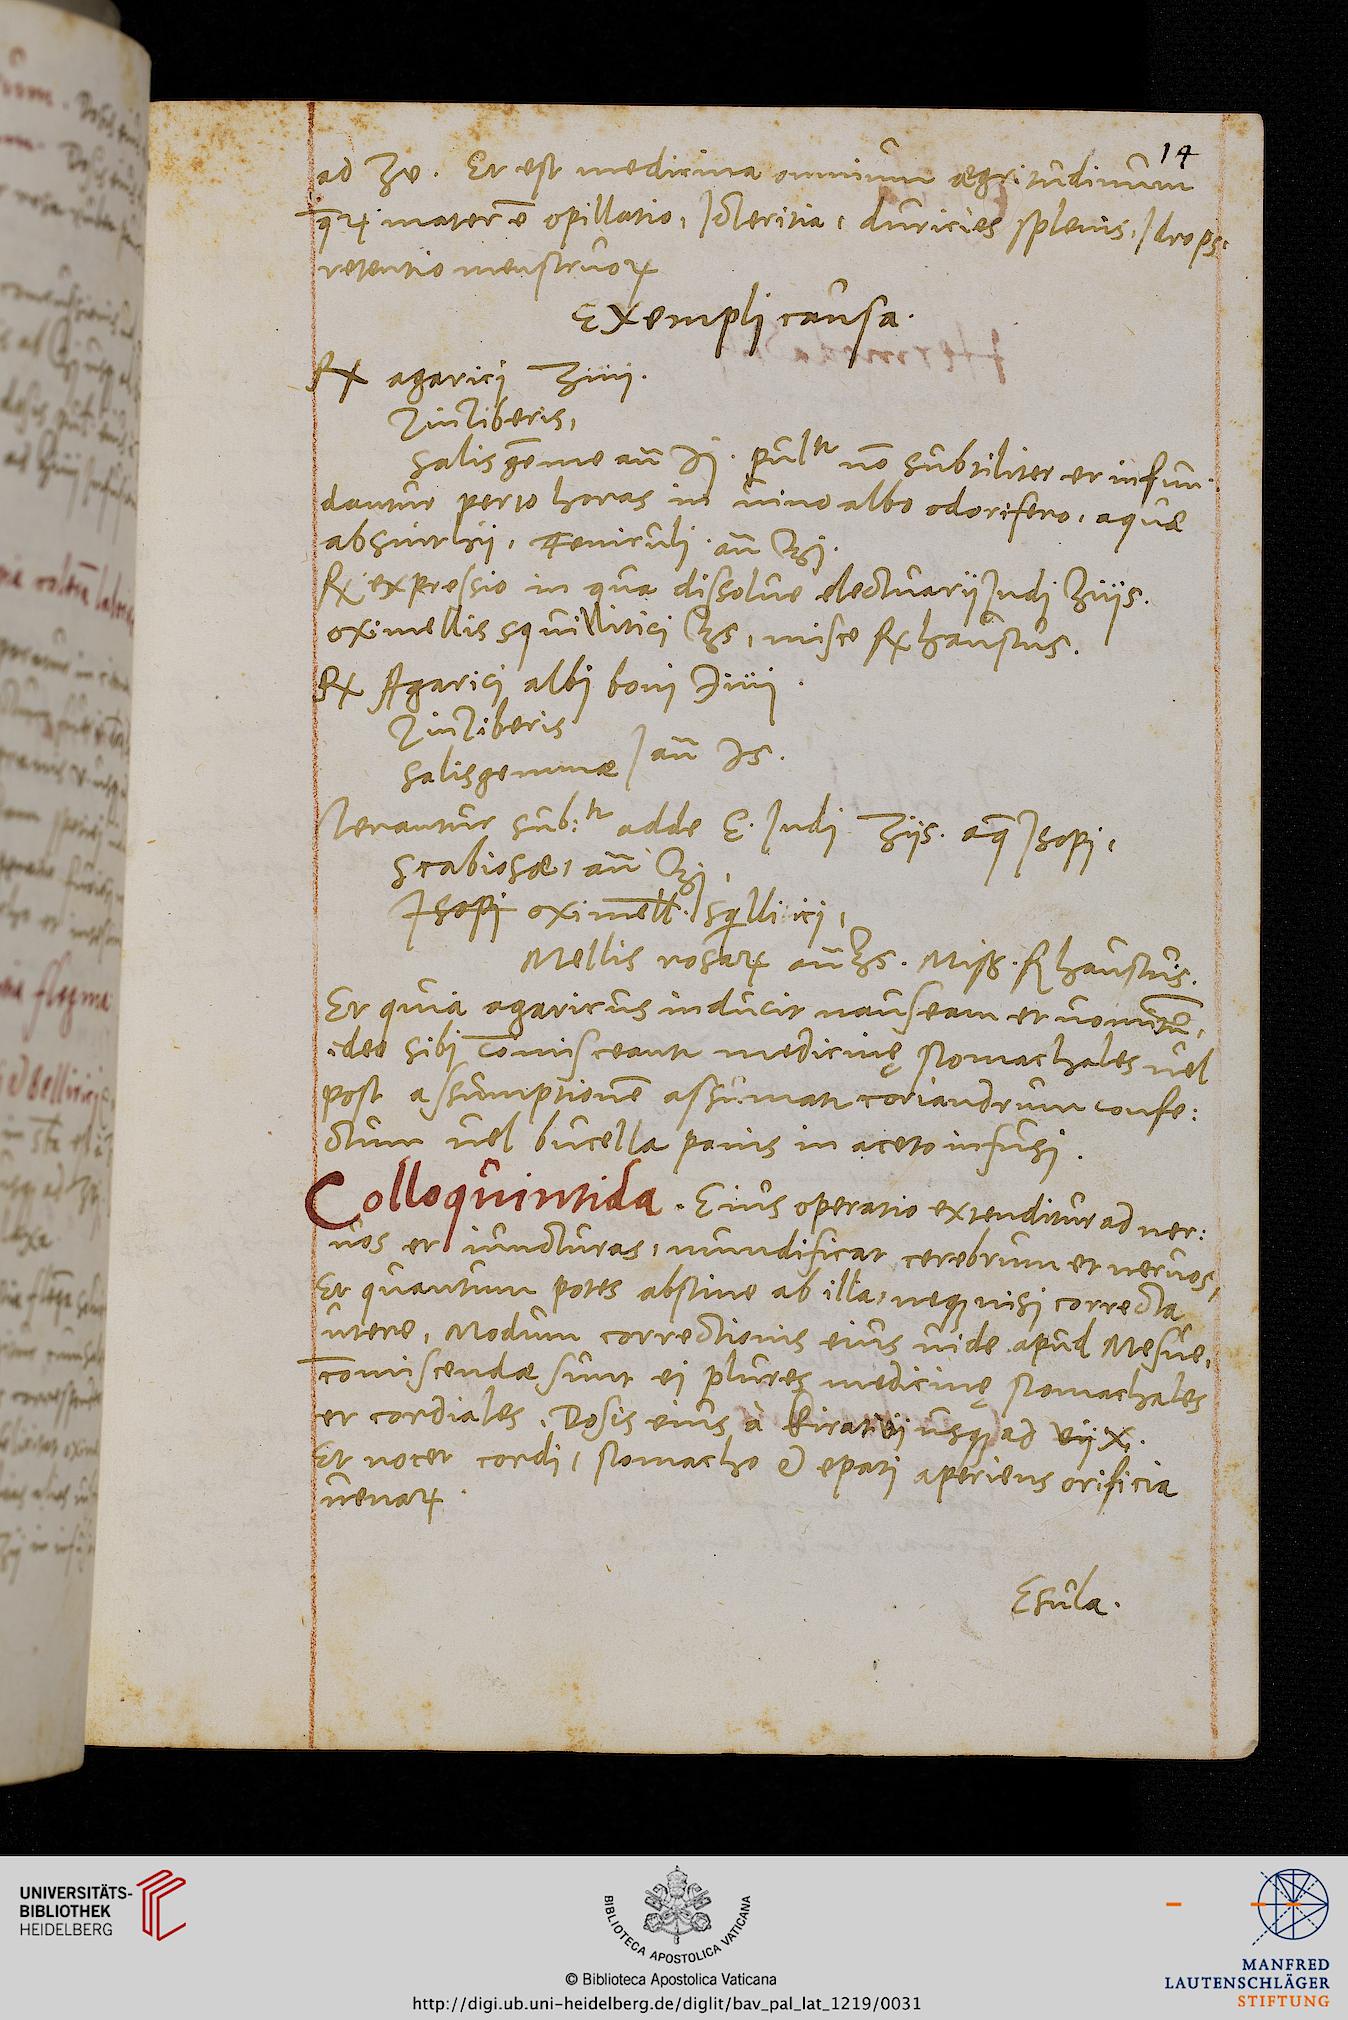 14
ad ʒv. Et est medicina omnium ægritudinum
q̄rꝝ mater ē opillatio, Icteritia, duricies splenis, Idrops:
retentio menstruoꝝ
Exempli causa.
℞ agarici ʒiiij.
Zinziberis,
salis gēme an̄ ℈j. pulᵗʳ nō subtiliter et infun-
dantur per 10 horas in uino albo odorifero, aquæ
absinthij, feniculi an̄ ℥j.
℞ expressio in qua dissolue electuarij Indi ʒiijs.
oximellis squillitici ℥s, misce ℞ haustus.
℞ Agarici albi boni ℈iiij.
Zinziberis
salisgemmæ an̄ ℈s.
Terantur sub:ᵗʳ adde E. Indi ʒijs. aq̄ Isopi,
scabiosæ, an̄ ℥j,
Isopi oximell. sq̄llitici,
Mellis rosaꝝ an̄ ℥s. Miss. ℞ haustus.
Et quia agaricus inducit nauseam et uomitū,
ideo sibi cōmisceantʳ medicinę stomachales uel
post assumptionē assumatʳ coriandrum confe:
ctum uel bucella panis in aceto infusi.
Colloquintida. Eius operatio extenditur ad ner:
uos et iuncturas, mundificat cerebrum et neruos,
Et quantum potes abstine ab illa, neqꝫ nisi correcta
utere, Modum correctionis eius uide apud Mesue,
cōmiscendæ sunt ei plures medicinę stomachales
et cordiales. Dosis eius à kirat iij usqꝫ ad x.
Et nocet cordi, stomacho & epati aperiens orificia
uenaꝝ.
Esula.
UNIVERSITÄTS-
BIBLIOTHEK
HEIDELBERG
BIBLIOTECA APOSTOLICA VATICANA
© Biblioteca Apostolica Vaticana
http://digi.ub.uni-heidelberg.de/diglit/bav_pal_lat_1219/0031
MANFRED
LAUTENSCHLÄGER
STIFTUNG